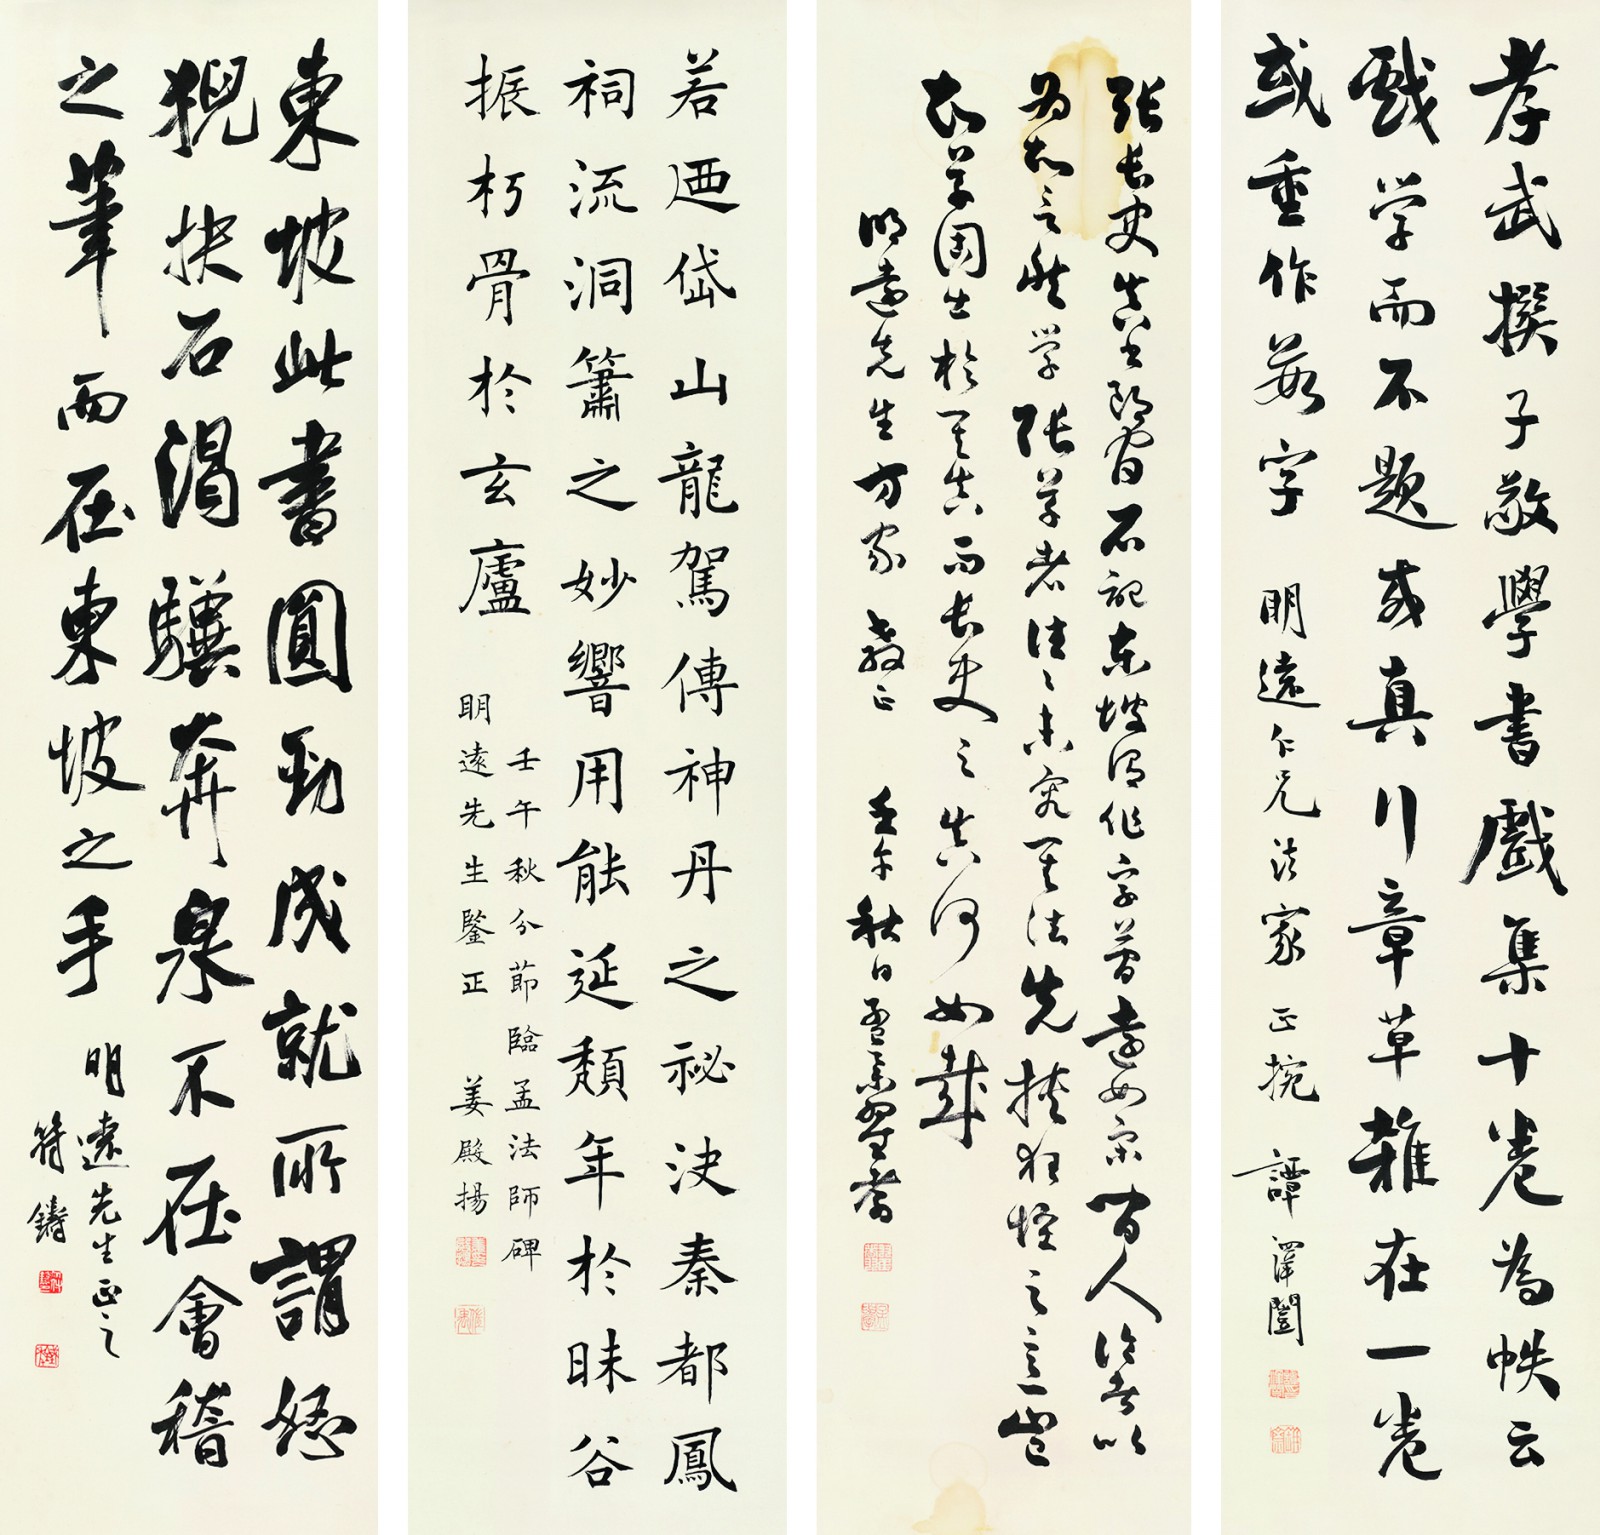 孝武撰子敬學書戲集十卷為帙云
戲学而不題或真行章草雜在一卷
或重作數字 明遠仁兄法家正捥 譚澤闓
張長史真書郎官石記東坡謂作字簡遠如宋間人論者以
為知言然学張草者往往未究其法先挾狂怪之意豈
知草固出於其真而長史之真何如哉
明遠先生方家教正 壬午秋日
若迺岱山龍駕傳神丹之祕決秦都鳳
祠流洞簫之妙響用能延頹年於昧谷
振朽骨於玄廬
壬午秋分節臨孟法師碑
明遠先生鑒正 姜殿揚
東坡此書圓勁成就所謂怒
猊抉石渴驥奔泉不在會稽
之筆而在東坡之手
明遠先生正之
符鑄